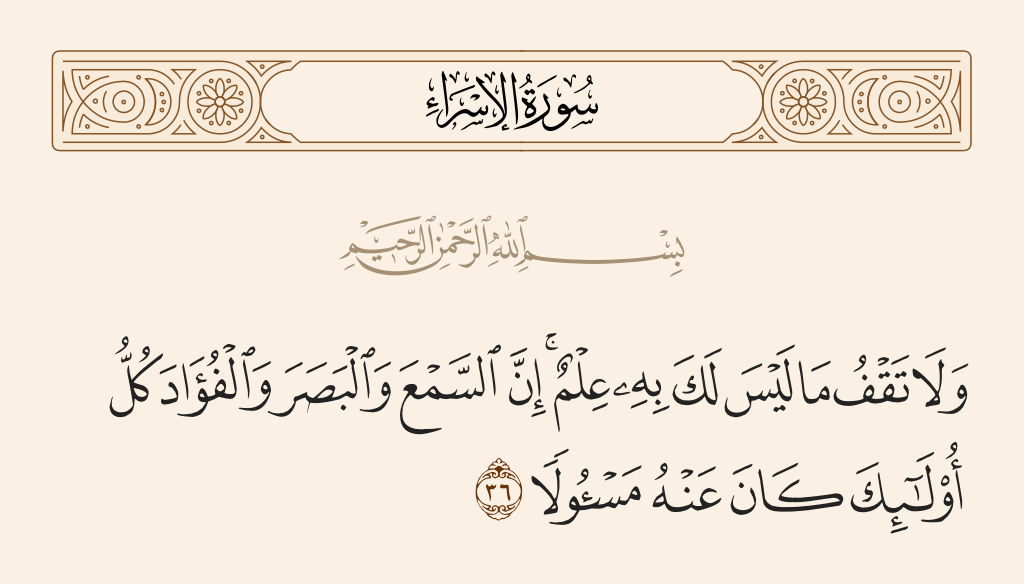 سُورَةُ الإِسْرَاءِ
بِسْمِ ٱللَّهِ ٱلرَّحْمَٰنِ ٱلرَّحِيمِ
وَلَا تَقْفُ مَا لَيْسَ لَكَ بِهِۦ عِلْمٌ ۚ إِنَّ ٱلسَّمْعَ وَٱلْبَصَرَ وَٱلْفُؤَادَ كُلُّ
أُو۟لَـٰٓئِكَ كَانَ عَنْهُ مَسْـُٔولًا ٣٦